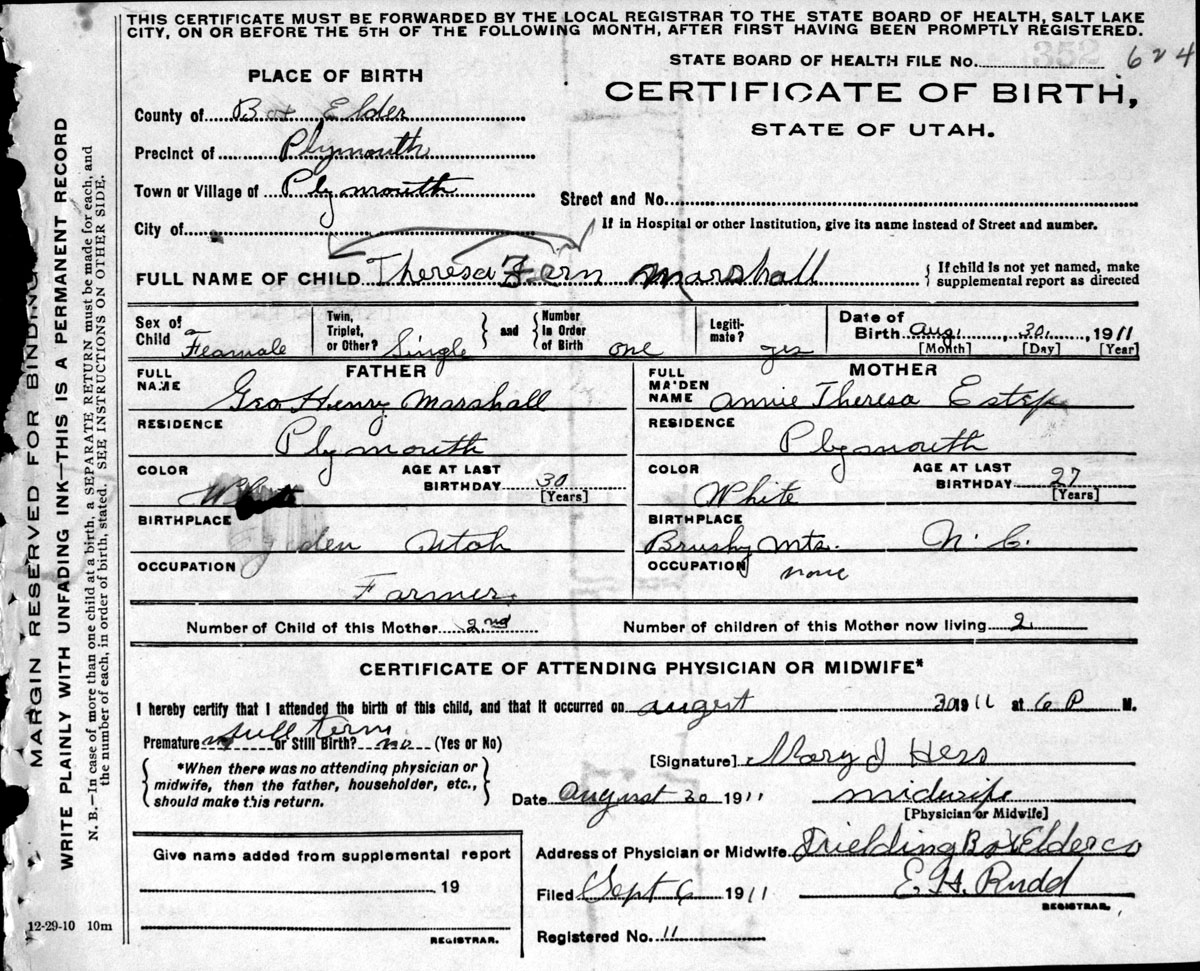 THIS CERTIFICATE MUST BE FORWARDED BY THE LOCAL REGISTRAR TO THE STATE BOARD OF HEALTH, SALT LAKE
CITY, ON OR BEFORE THE 5TH OF THE FOLLOWING MONTH, AFTER FIRST HAVING BEEN PROMPTLY REGISTERED.
MARGIN RESERVED FOR BINDING
WRITE PLAINLY WITH UNFADING INK—THIS IS A PERMANENT RECORD
N. B.—In case of more than one child at a birth, a SEPARATE RETURN must be made for each, and
the number of each, in order of birth, stated. SEE INSTRUCTIONS ON OTHER SIDE.
STATE BOARD OF HEALTH FILE No. 352 624
PLACE OF BIRTH
CERTIFICATE OF BIRTH,
STATE OF UTAH.
County of Box Elder
Precinct of Plymouth
Town or Village of Plymouth
Street and No.
City of
If in Hospital or other Institution, give its name instead of Street and number.
FULL NAME OF CHILD Theresa Fern Marshall
If child is not yet named, make
supplemental report as directed
Sex of Child Feamale
Twin, Triplet, or Other? Single
and Number in Order of Birth one
Legiti-mate? yes
Date of Birth Aug. 30, 1911
[Month] [Day] [Year]
FATHER
FULL NAME Geo Henry Marshall
RESIDENCE
Plymouth
COLOR White
AGE AT LAST BIRTHDAY 30
[Years]
BIRTHPLACE
den Utah
OCCUPATION
Farmer
MOTHER
FULL MAIDEN NAME Annie Theresa Estep
RESIDENCE
Plymouth
COLOR White
AGE AT LAST BIRTHDAY 27
[Years]
BIRTHPLACE
Brushy Mts. N. C.
OCCUPATION none
Number of Child of this Mother 2nd
Number of children of this Mother now living 2
CERTIFICATE OF ATTENDING PHYSICIAN OR MIDWIFE*
I hereby certify that I attended the birth of this child, and that it occurred on august 30 1911 at 6 P M.
full term
Premature or Still Birth? no (Yes or No)
*When there was no attending physician or
midwife, then the father, householder, etc.,
should make this return.
[Signature] Mary J Hess
Date August 30 1911 midwife
[Physician or Midwife]
Give name added from supplemental report
19
REGISTRAR.
Address of Physician or Midwife Frielding Box Elder co
Filed Sept 6 1911 E. H. Rudd
REGISTRAR.
Registered No. 11
12-29-10 10m